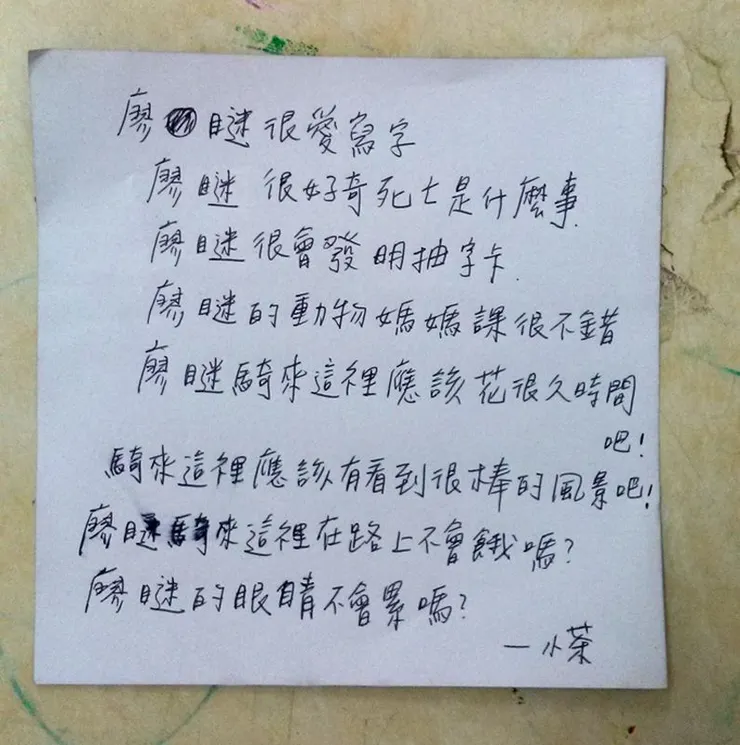 廖瞇很愛寫字
廖瞇 很好奇死亡是什麼事.
廖瞇很會發明抽字卡.
廖瞇的動物媽媽課很不錯
廖瞇騎來這裡應該花很久時間
吧!
騎來這裡應該有看到很棒的風景吧!
廖瞇騎來這裡在路上不會餓嗎?
廖瞇的眼睛不會累嗎?
—小茶